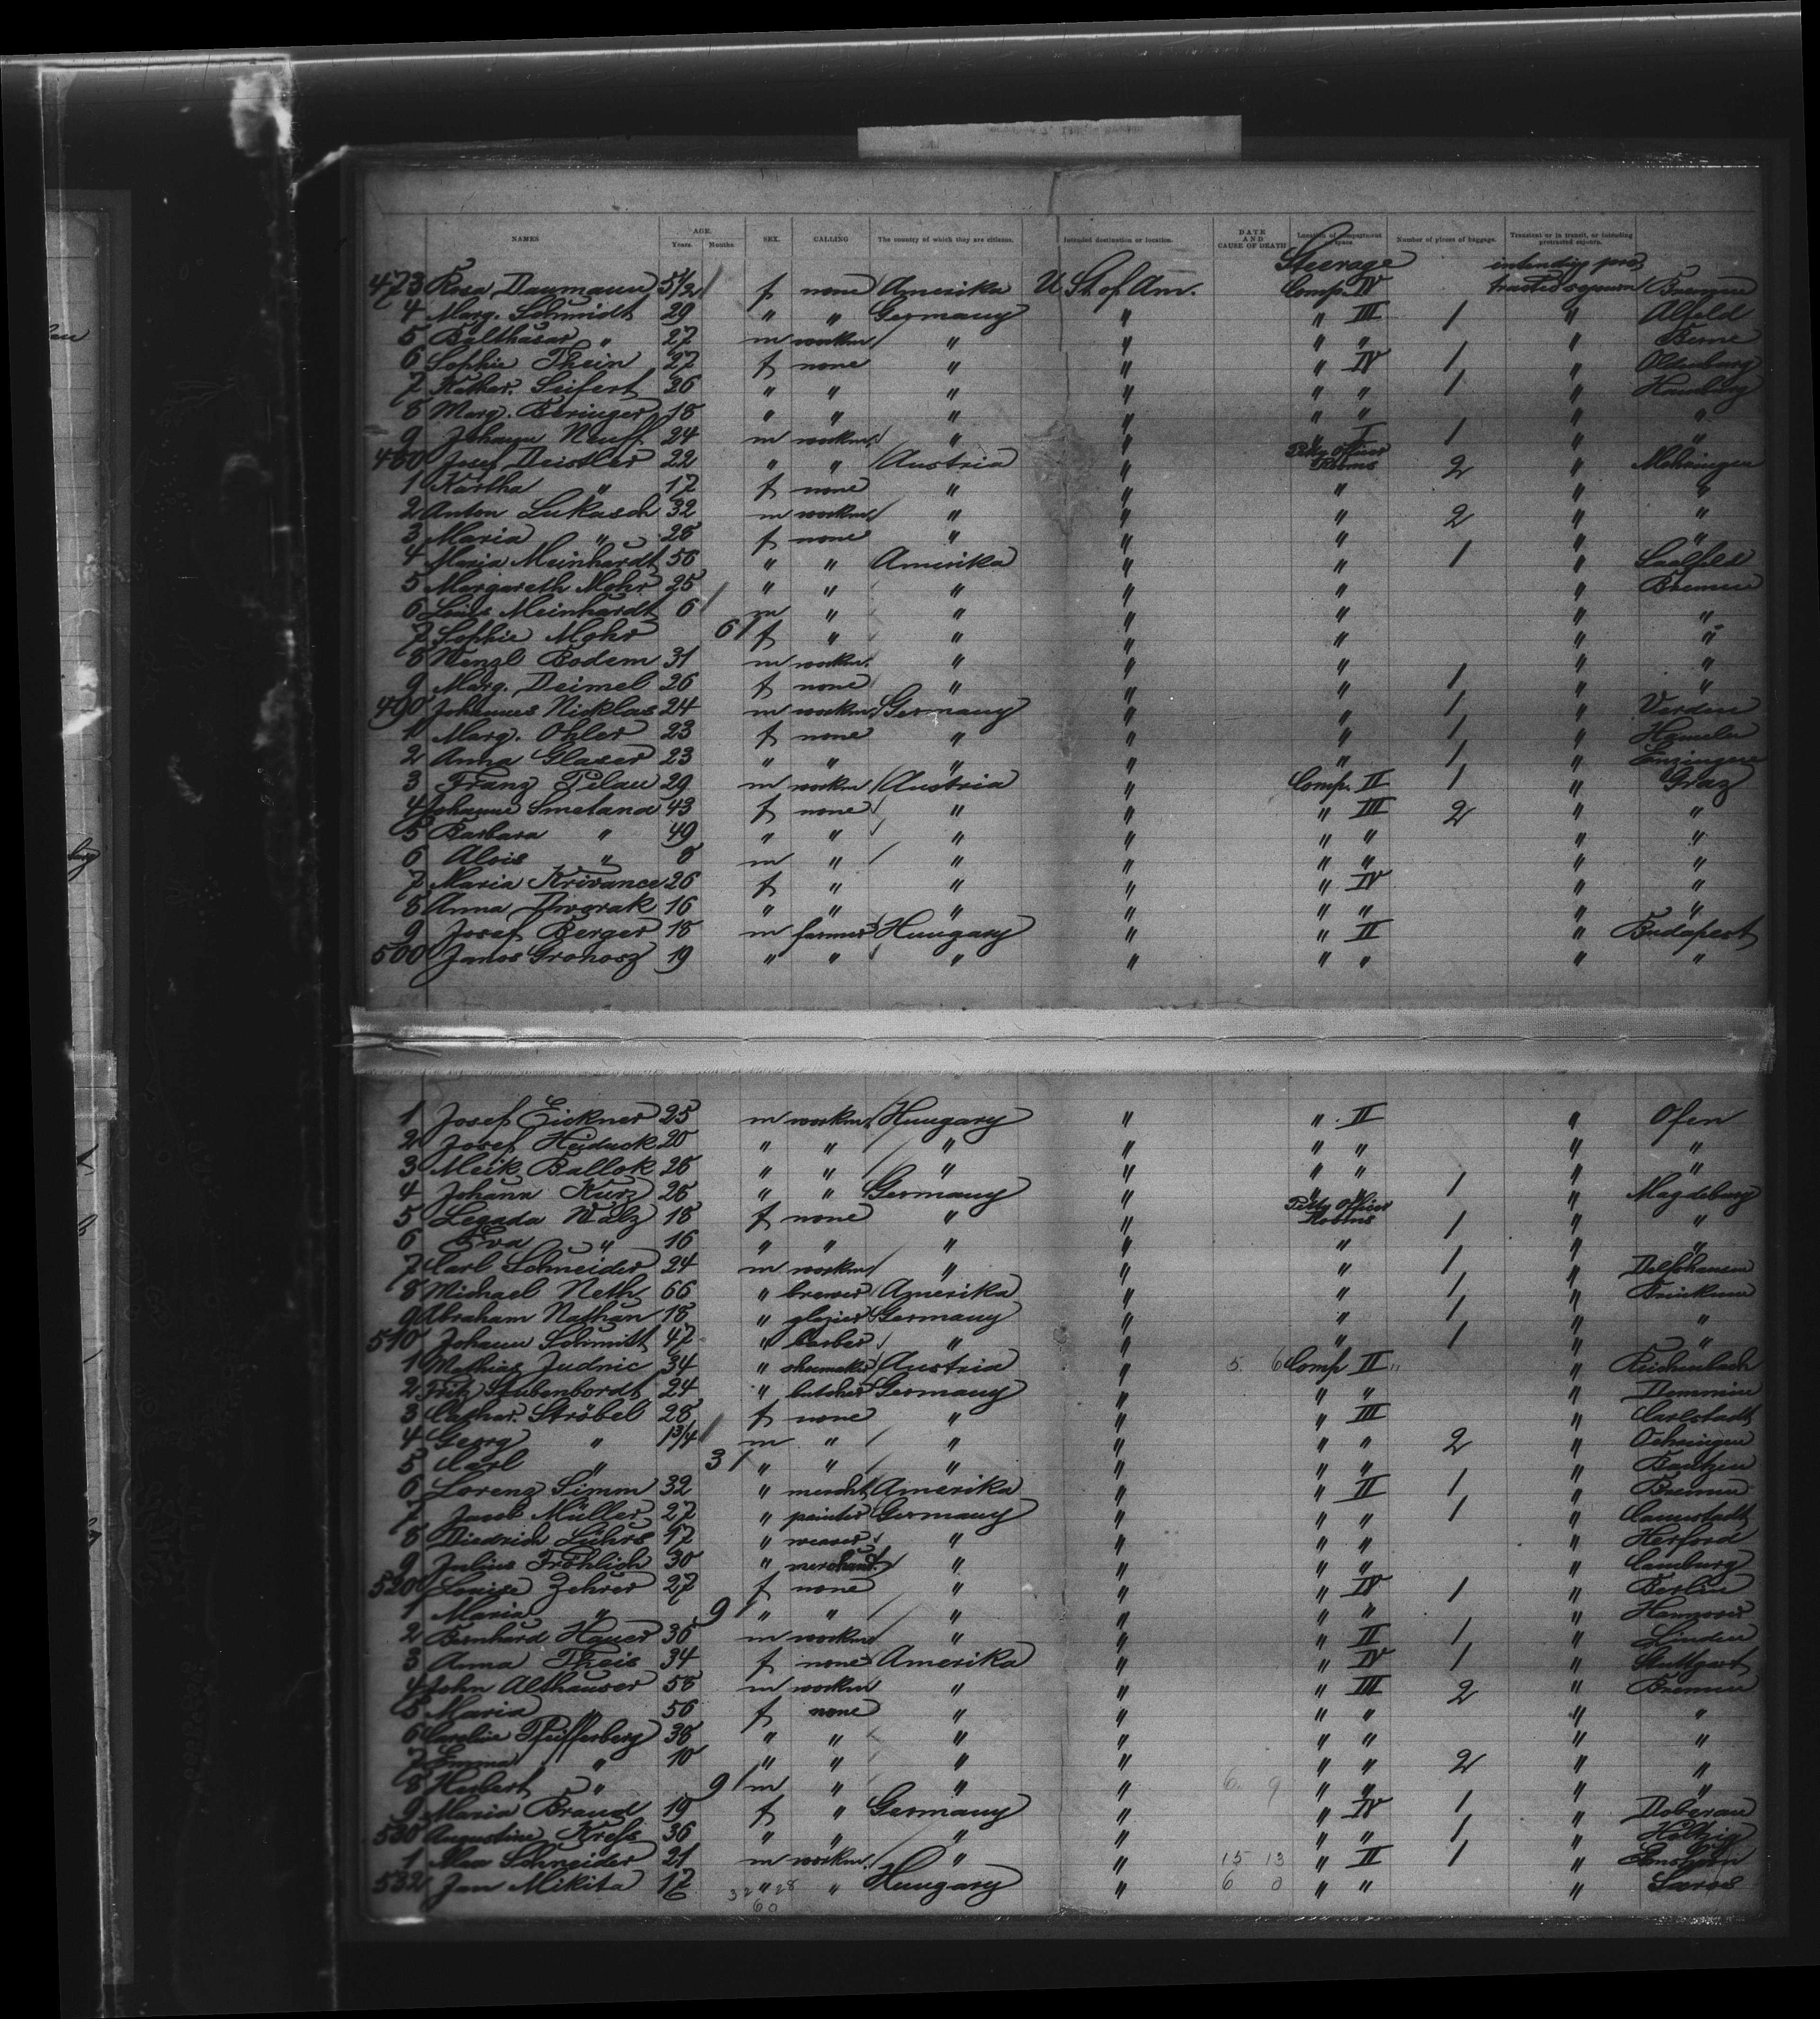 NAMES AGE. Years. Months. SEX. CALLING The country of which they are citizens. Intended destination or location. DATE AND CAUSE OF DEATH Location of compartment or space. Number of pieces of baggage. Transient or in transit, or intending protracted sojourn.
Steerage intending pro
473 Rosa Daumann 5 1/2 f none Amerika U. St. of Am. Comp. IV tracted sojourn Bremen
4 Marg. Schmidt 29 " " Germany " " III 1 " Alfeld
5 Balthasar " 27 m workm " " " " " Berne
6 Sophie Thein 27 f none " " " IV 1 " Oldenburg
7 Kathar. Seifert 36 " " " " " " 1 " Hamburg
8 Marg. Beringer 18 " " " " " " " "
9 Johann Neuff 24 m workm " " " I 1 " "
480 Josef Deistler 22 " " Austria " Petty Officer Rooms 2 "
1 " 17 f none " " " " "
2 Anton Lukasch 32 m workm " " " 2 " "
3 Maria " 28 f none " " " " "
4 Maria Meinhardt 56 " " Amerika " " 1 " Saalfeld
5 Margareth Mohr 25 " " " " " " Bremen
6 Louis Meinhardt 6 m " " " " " "
7 Sophie Mohr 6 f " " " " " "
8 Wenzl Bodem 31 m workm. " " " " "
9 Marg. Deimel 26 f none " " " 1 " "
490 Johannes Nicklas 24 m workm Germany " " 1 " Verden
1 Marg. Ohler 23 f none " " " 1 " Hameln
2 Anna Glaser 23 " " " " " 1 "
3 Franz Pilau 29 m workm Austria " Comp. II 1 " Graz
4 Johanne Smetana 43 f none " " " III 2 " "
5 Barbara " 49 " " " " " " " "
6 Alois " 8 m " " " " " " "
7 Maria Krivance 26 f " " " " IV " "
8 Anna Dworak 16 " " " " " " " "
9 Josef Berger 18 m farmer Hungary " " II " Budapest
500 Janos Gronosz 19 " " " " " " " "
1 Josef Eickner 25 m workm. Hungary " " II " Ofen
2 Josef Heiduck 20 " " " " " " " "
3 Meik. Ballok 28 " " " " " " " "
4 Johann Kurz 26 " " Germany " " " 1 " Magdeburg
5 Legada Walz 18 f none " " Petty Officer Rooms 1 " "
6 Eva " 16 " " " " " " "
7 Carl Schneider 24 m workm " " " 1 " Delfshausen
8 Michael Neth 66 " brewer Amerika " " 1 "
9 Abraham Nathan 18 " glazier Germany " " 1 " "
510 Johann Schmitt 47 " barber " " " 1 " "
1 Mathias Judnic 34 " shoemaker Austria " 5 6 Comp II " " Reichenbach
2 Fritz Stubenbordt 24 " butcher Germany " " " " Demmin
3 Cathar. Ströbel 28 f none " " " III " Carlstadt
4 Georg " 1 3/4 m " " " " " 2 " Oehringen
5 Carl " 3 " " " " " " " Bautzen
6 Lorenz Simm 32 " mercht Amerika " " II 1 " Bremen
7 Jacob Müller 27 " painter Germany " " " 1 " Cannstadt
8 Diedrich Lührs 17 " weaver " " " " " Herford
9 Julius Fröhlich 30 " merchant. " " " " " Camburg
520 Louise Zehrer 27 f none " " " IV 1 " Berlin
1 Maria " 9 " " " " " " " Hannover
2 Bernhard Hauer 36 m workm " " " II 1 " Linden
3 Anna Theis 34 f none Amerika " " IV 1 " Stuttgart
4 John Althauser 58 m workm " " " III 2 " Bremen
5 Maria " 56 f none " " " " " "
6 Caroline Pfeifferberg 38 " " " " " " " "
7 Emma " 10 " " " " " " 2 " "
8 Herbert " 9 m " " " 6 9 " " " "
9 Maria Brand 19 f " Germany " " IV 1 " Doberan
530 Augustine Kress 36 " " " " " " 1 "
1 Max Schneider 21 m workm. " " 15 13 " II 1 "
532 Jan Mikita 17 " " Hungary " 6 0 " " " Saros
32 28
60